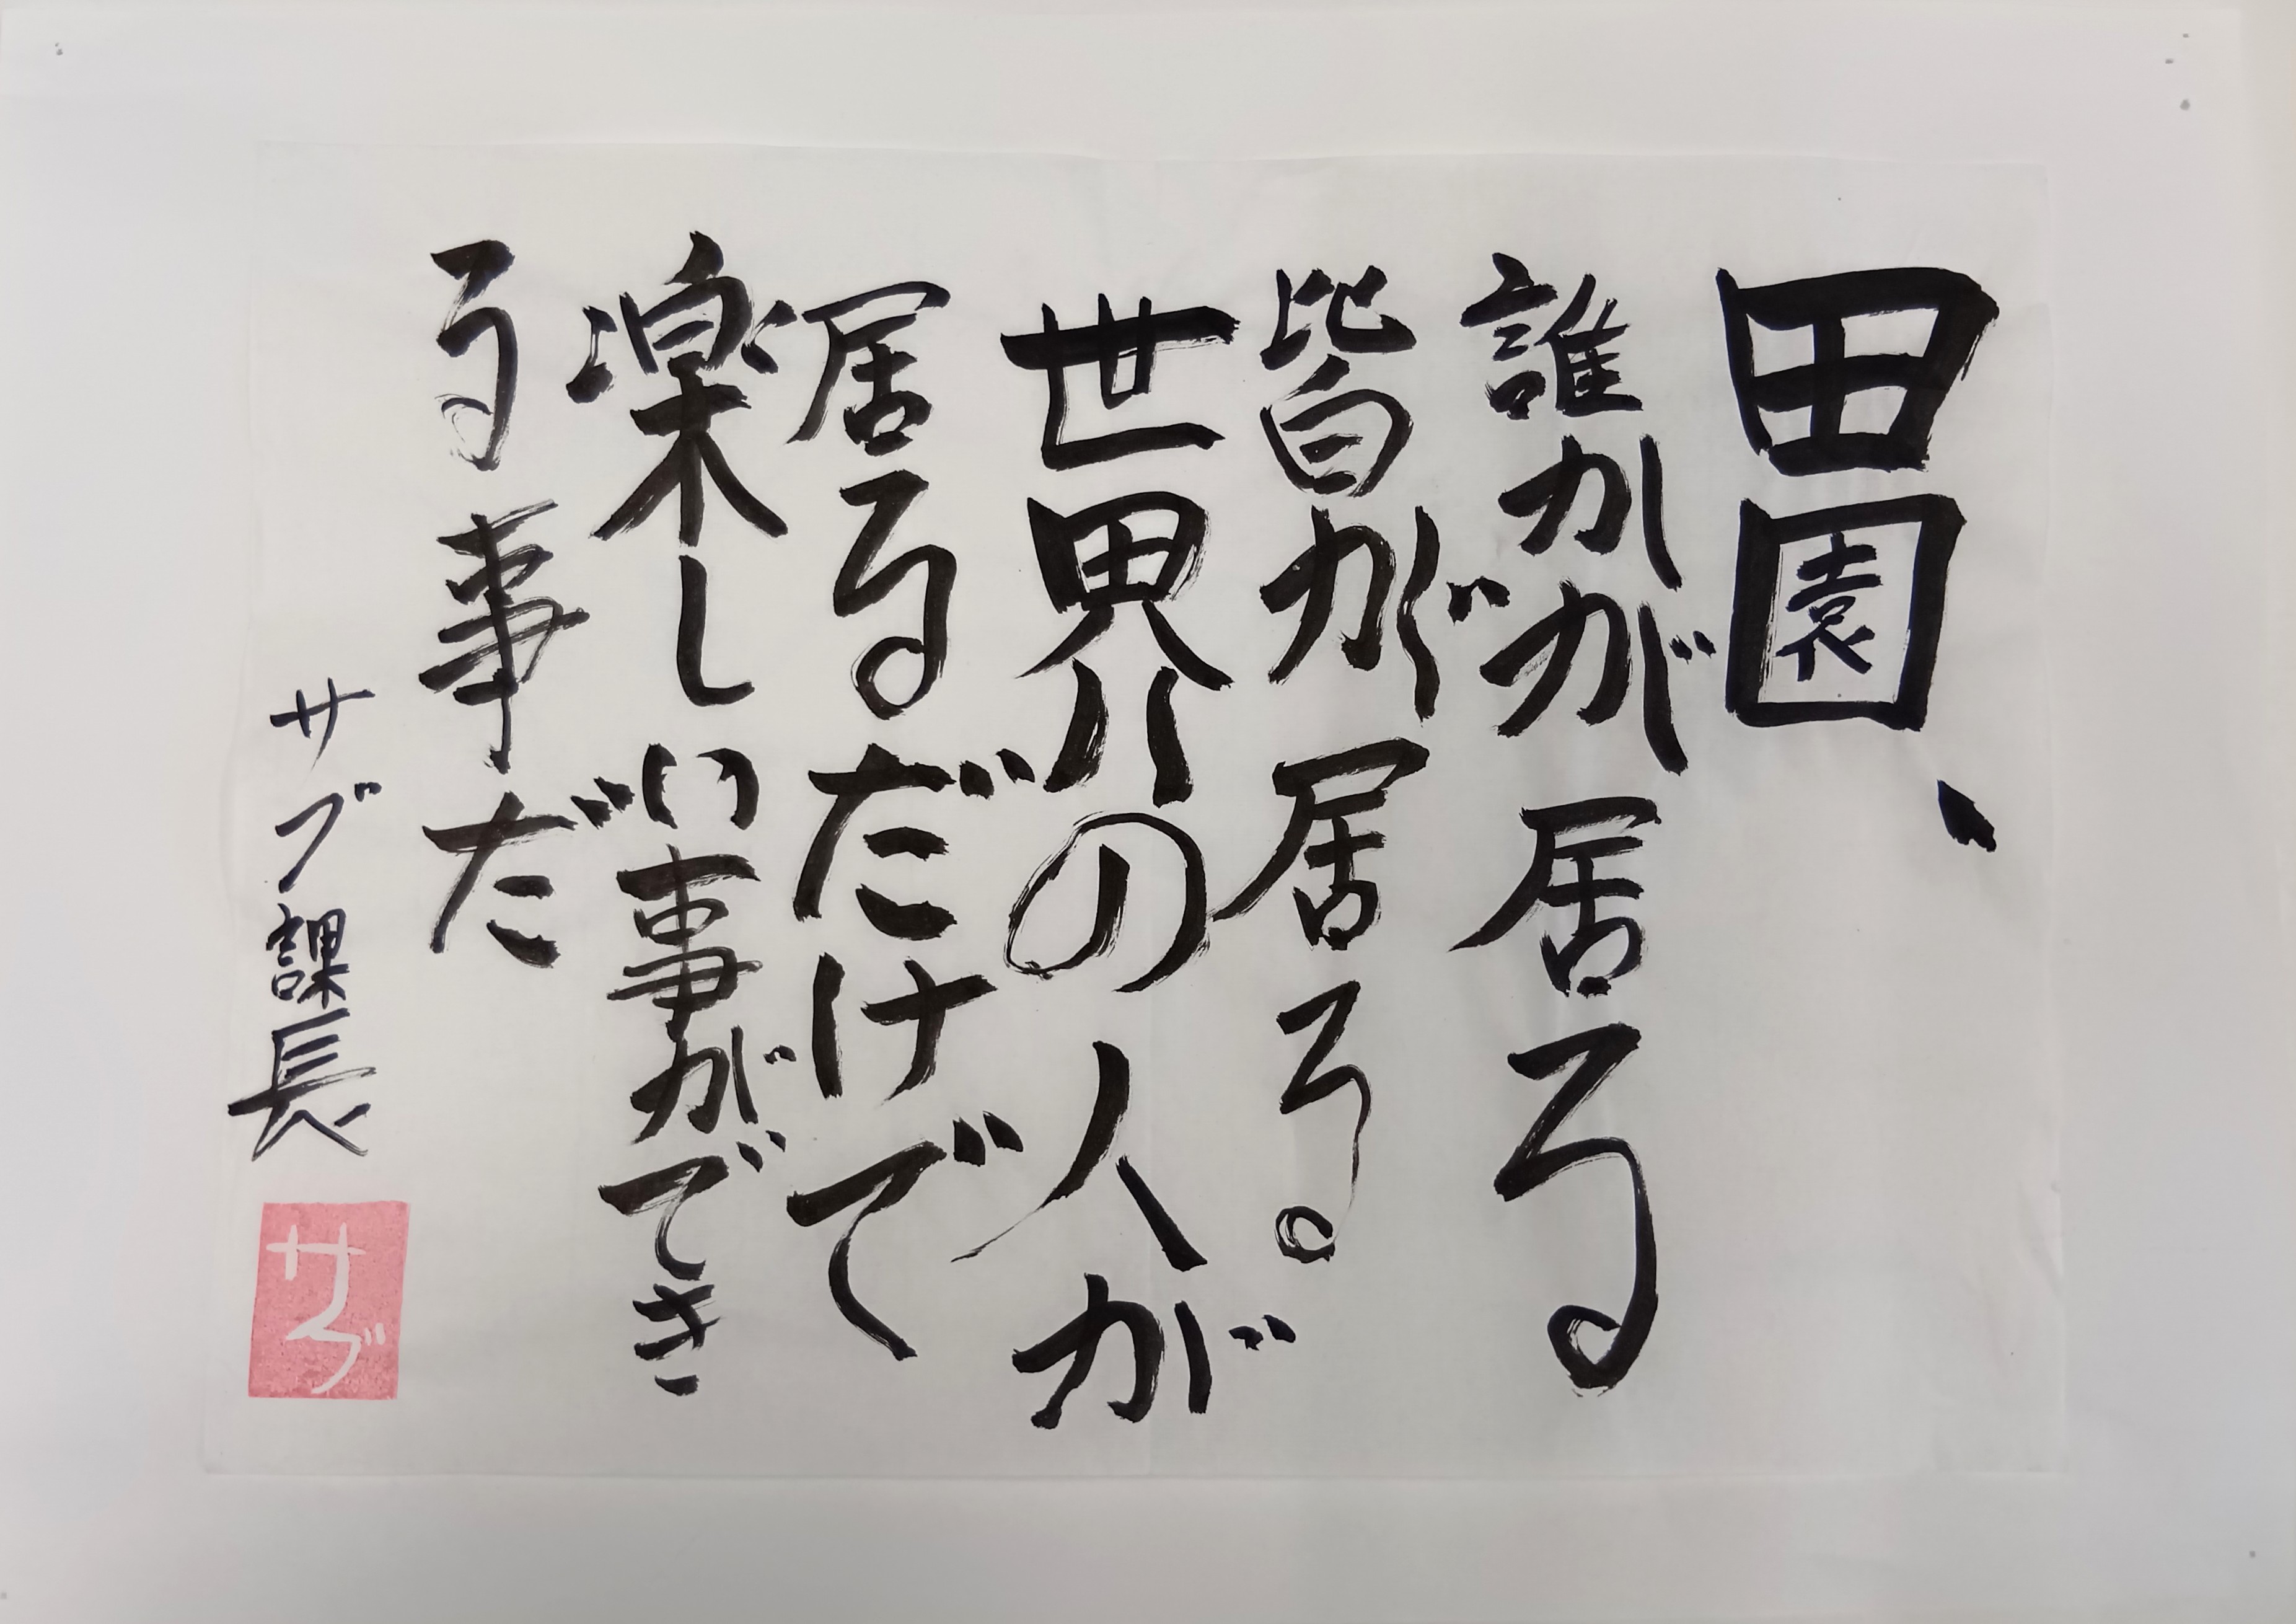 田園、
誰かが居る
皆が居る。
世界の人が
居るだけで
楽しい事ができ
る事だ
サブ課長
サブ